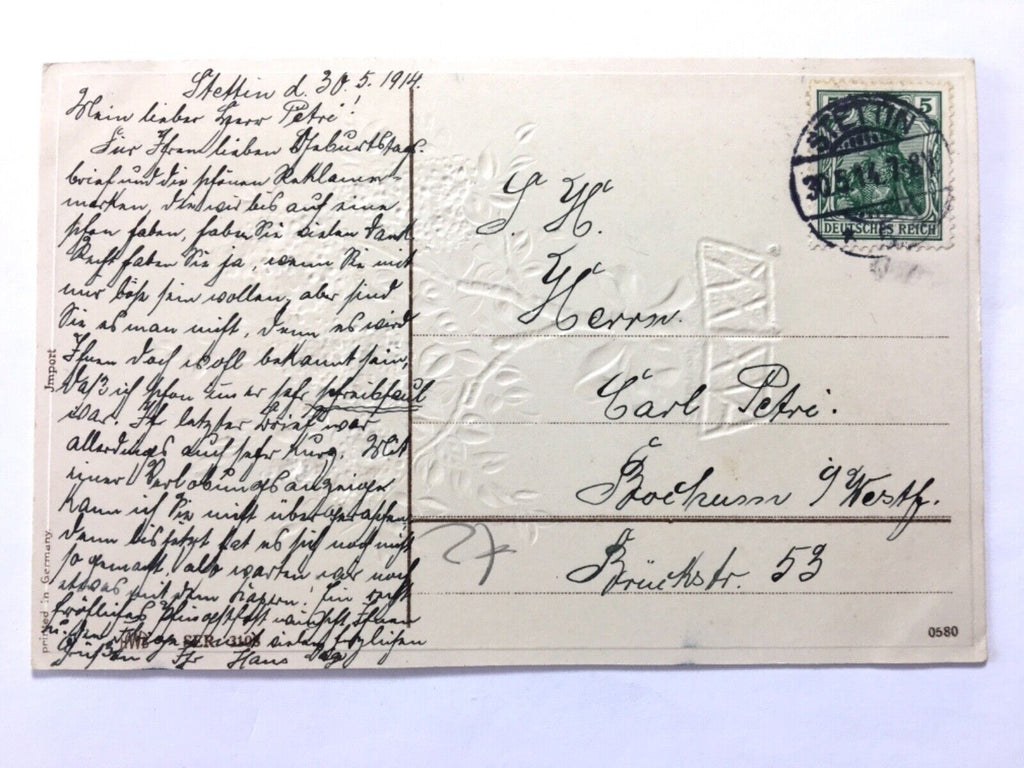 Stettin d. 30.5.1914.
Mein lieber Herr Petri!
Für Ihren lieben Geburtstags-
brief und die schönen Reklame-
marken, die wir bis auf eine
schon haben, haben Sie vielen Dank
Recht haben Sie ja, wenn Sie mit
mir böse sein wollen, aber sind
Sie es man nicht, denn es wird
Ihnen doch wohl bekannt sein,
daß ich schon immer sehr schreibfaul
war. Ihr letzter Brief war
allerdings auch sehr kurz. Mit
einer Verlobungsanzeige
kann ich Sie nicht überraschen
denn bis jetzt hat es sich noch nicht
so gemacht, also warten wir noch
etwas mit dem
fröhliches Pfingstfest wünscht Ihnen
vielen herzlichen
Grüßen Ihr Hans
S. H.
Herrn
Carl Petri.
Bochum i/Westf.
Brückstr. 53
27
5
DEUTSCHES REICH
STETTIN
30.5.14. 7-8N
Jmport
printed in Germany
SER. 3108
0580